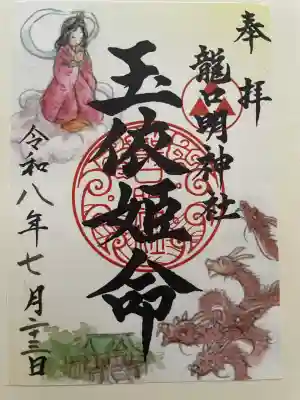 奉拝
龍口明神社
玉依姫命
令和八年七月二三日